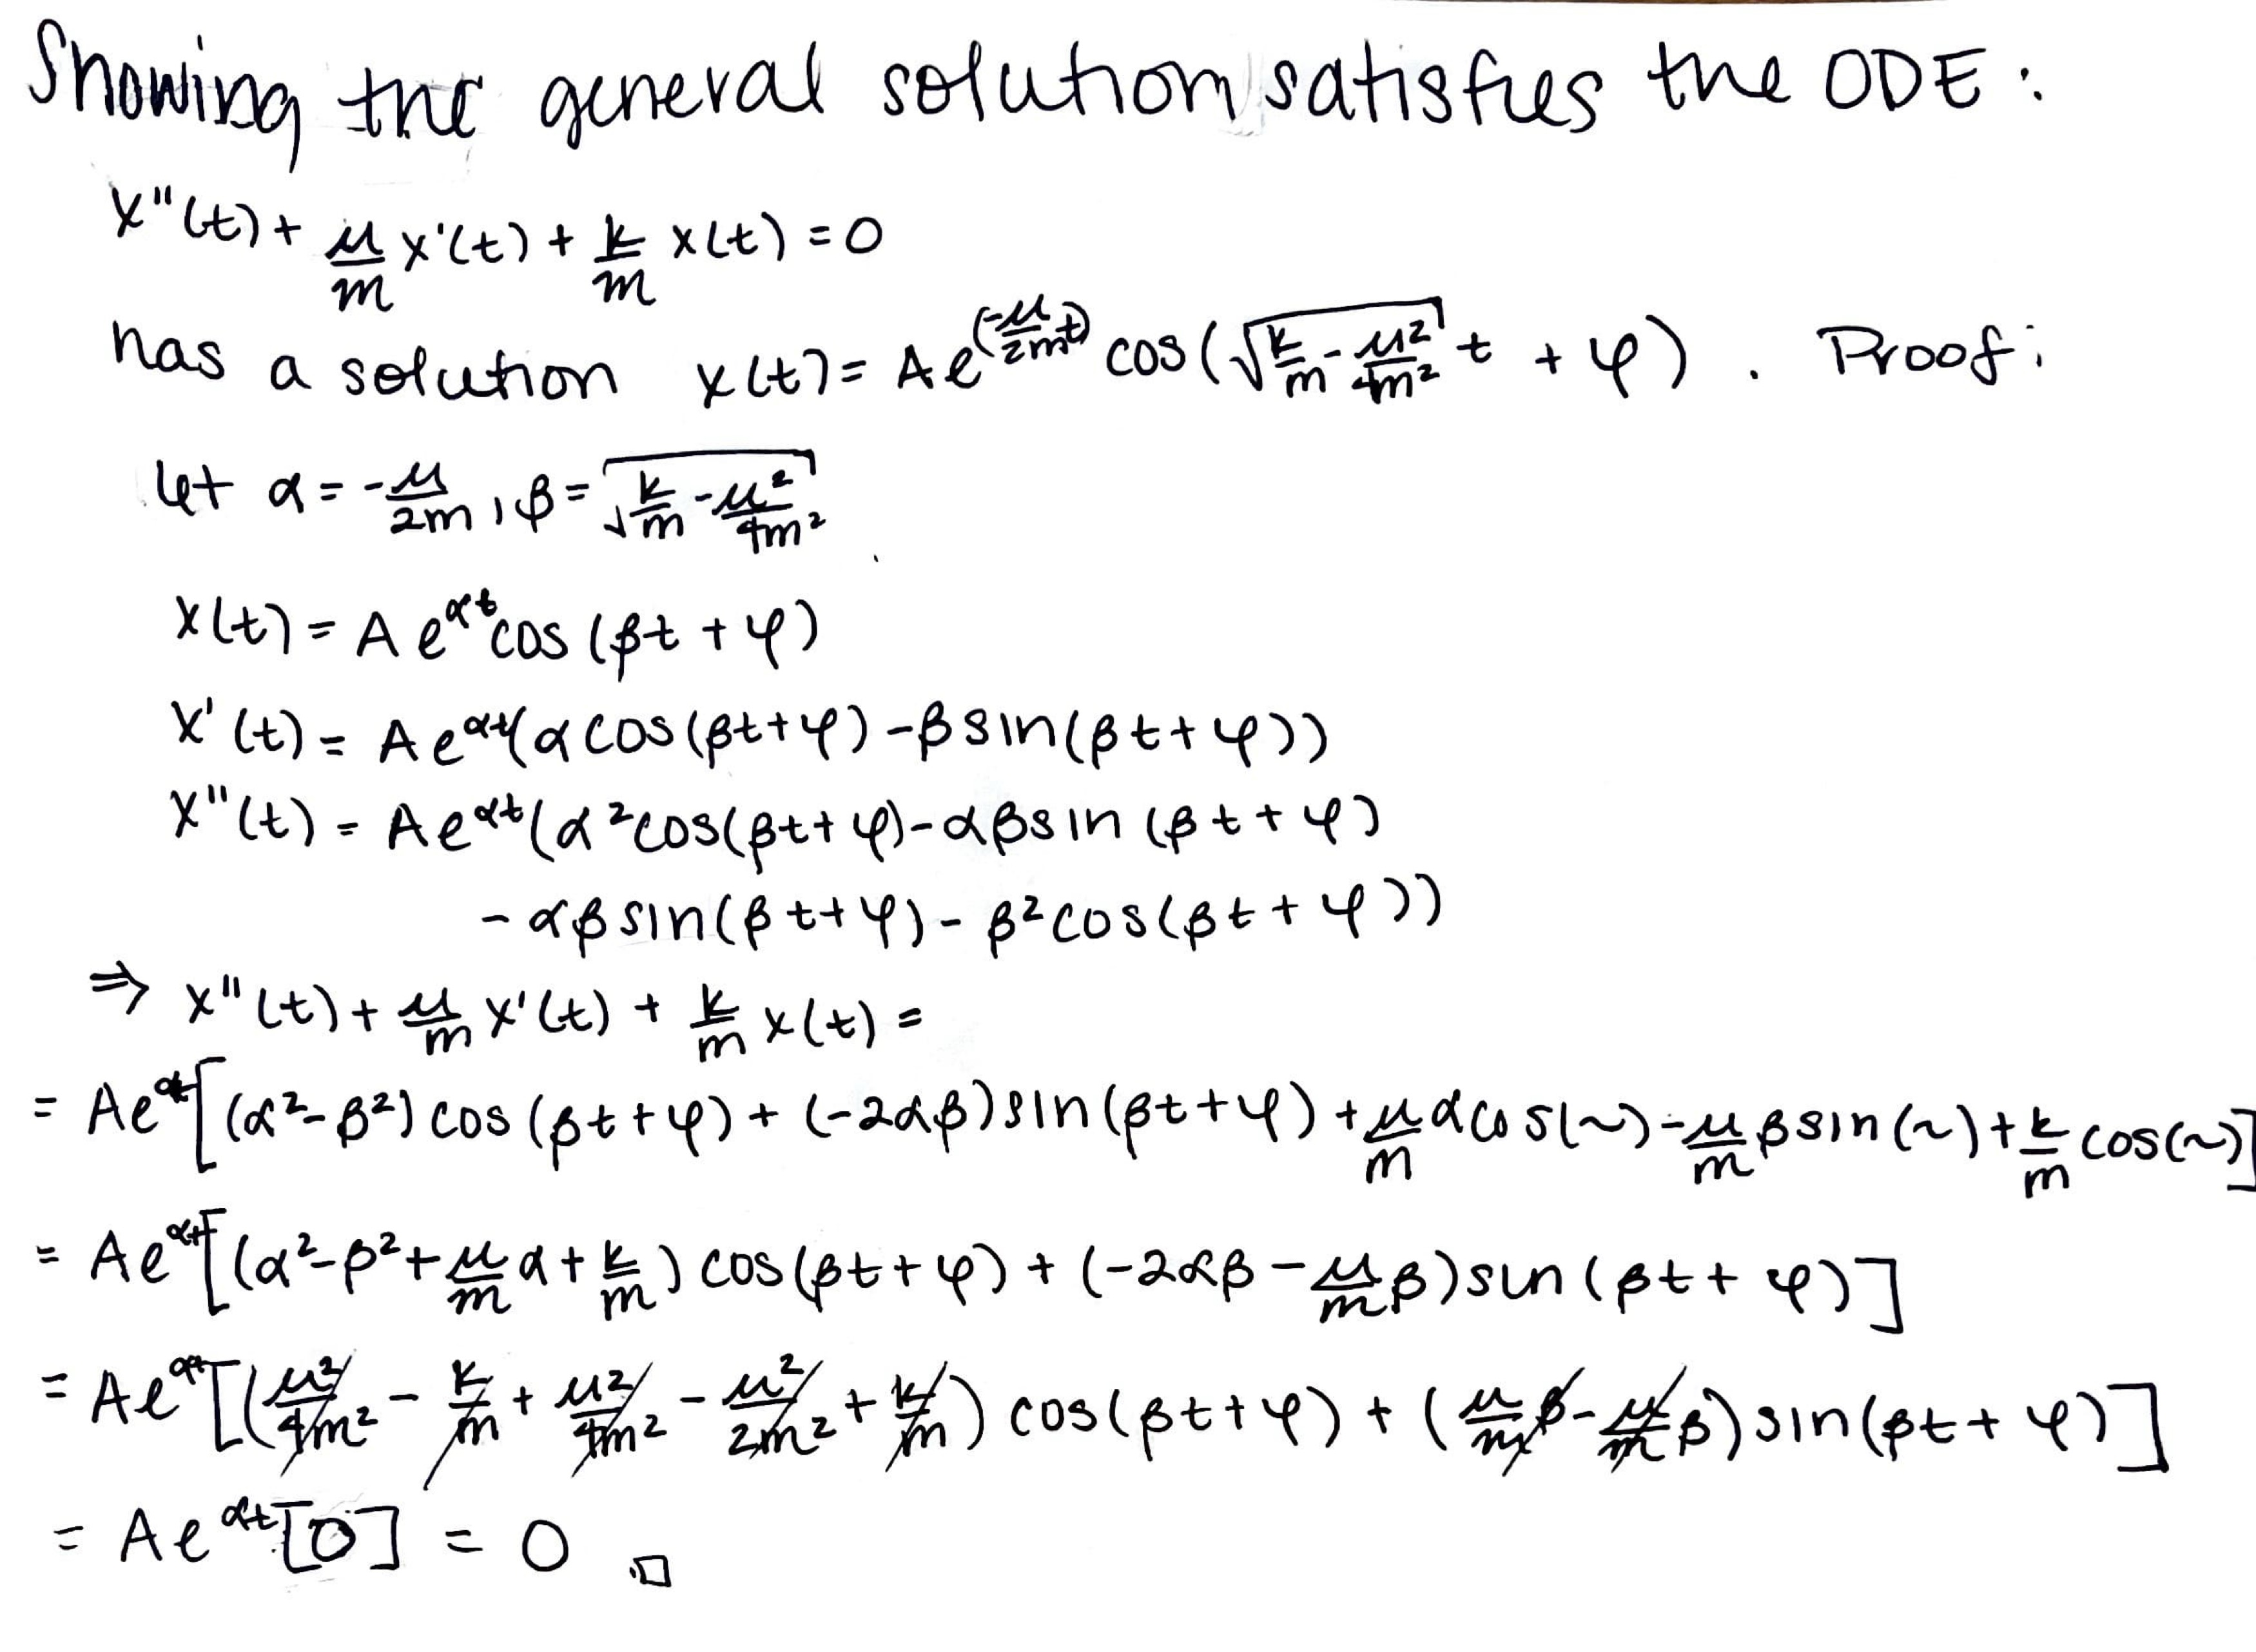 Showing the general solution satisfies the ODE:
x''(t) + μ/m x'(t) + k/m x(t) = 0
has a solution x(t) = Ae^(-μ/2m t) cos(√(k/m - μ²/4m²) t + φ). Proof:
let α = -μ/2m, β = √(k/m - μ²/4m²)
x(t) = A e^αt cos(βt + φ)
x'(t) = A e^αt(α cos(βt+φ) - β sin(βt+φ))
x''(t) = A e^αt(α² cos(βt+φ) - αβ sin(βt+φ)
- αβ sin(βt+φ) - β² cos(βt+φ))
⇒ x''(t) + μ/m x'(t) + k/m x(t) =
= Ae^αt[(α²-β²) cos(βt+φ) + (-2αβ) sin(βt+φ) + μ/m α cos(~) - μ/m β sin(~) + k/m cos(~)]
= Ae^αt[(α²-β²+μ/m α + k/m) cos(βt+φ) + (-2αβ - μ/m β) sin(βt+φ)]
= Ae^αt[(μ²/4m² - k/m + μ²/4m² - μ²/2m² + k/m) cos(βt+φ) + (μ/m β - μ/m β) sin(βt+φ)]
= Ae^αt[0] = 0 □